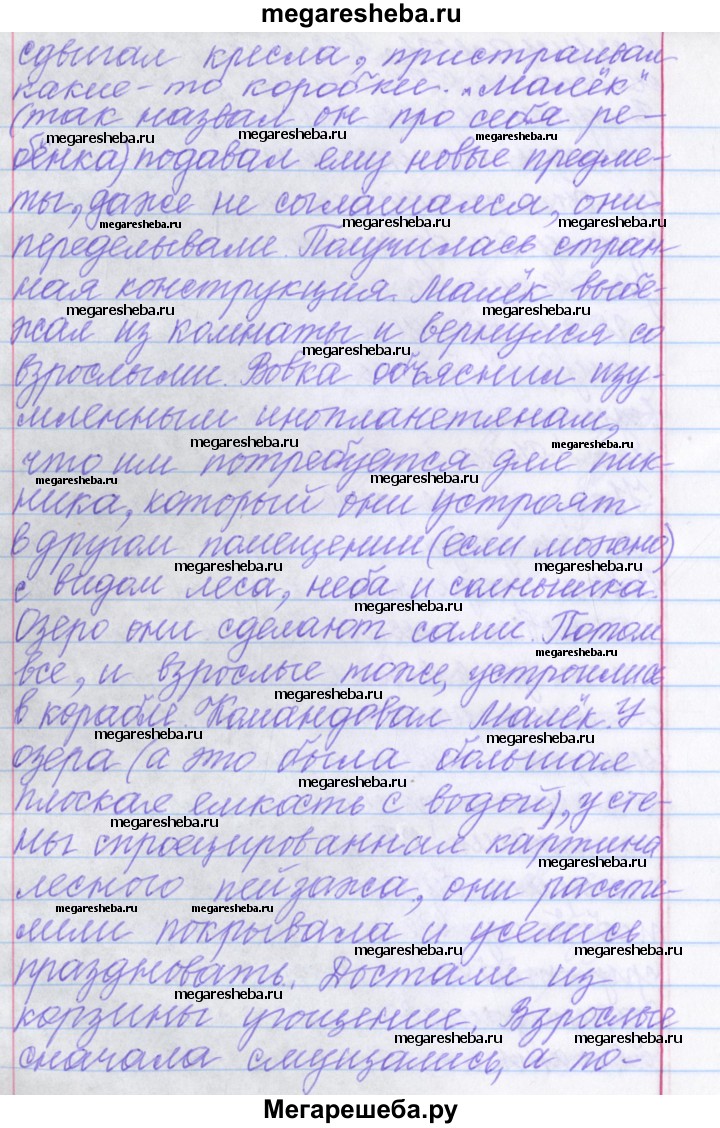 megaresheba.ru
сдвигал кресла, пристраивал
какие-то коробки. „Малёк“
(так назвал он про себя ре-
megaresheba.ru megaresheba.ru megaresheba.ru
бёнка) подавал ему новые предме-
ты, даже не соглашался, они
megaresheba.ru megaresheba.ru megaresheba.ru
переделывали. Получилась стран-
ная конструкция. Малёк выбе-
megaresheba.ru megaresheba.ru
жал из комнаты и вернулся со
megaresheba.ru
взрослыми. Вовка объяснил изу-
мленным инопланетянам,
megaresheba.ru megaresheba.ru
что им потребуется для пик-
megaresheba.ru megaresheba.ru
ника, который они устроят
в другом помещении (если можно)
megaresheba.ru megaresheba.ru
с видом леса, неба и солнышка.
megaresheba.ru
Озеро они сделают сами. Потом
megaresheba.ru
все, и взрослые тоже, устроились
megaresheba.ru
в корабле. Командовал Малёк. У
megaresheba.ru megaresheba.ru
озера (а это была большая
megaresheba.ru
плоская емкость с водой), у сте-
megaresheba.ru
ны спроецированная картина
megaresheba.ru
лесного пейзажа, они рассте-
megaresheba.ru megaresheba.ru
лили покрывала и уселись
megaresheba.ru megaresheba.ru
праздновать. Достали из
megaresheba.ru
корзины угощение. Взрослые
megaresheba.ru megaresheba.ru
сначала смущались, а по-
Мегарешеба.ру